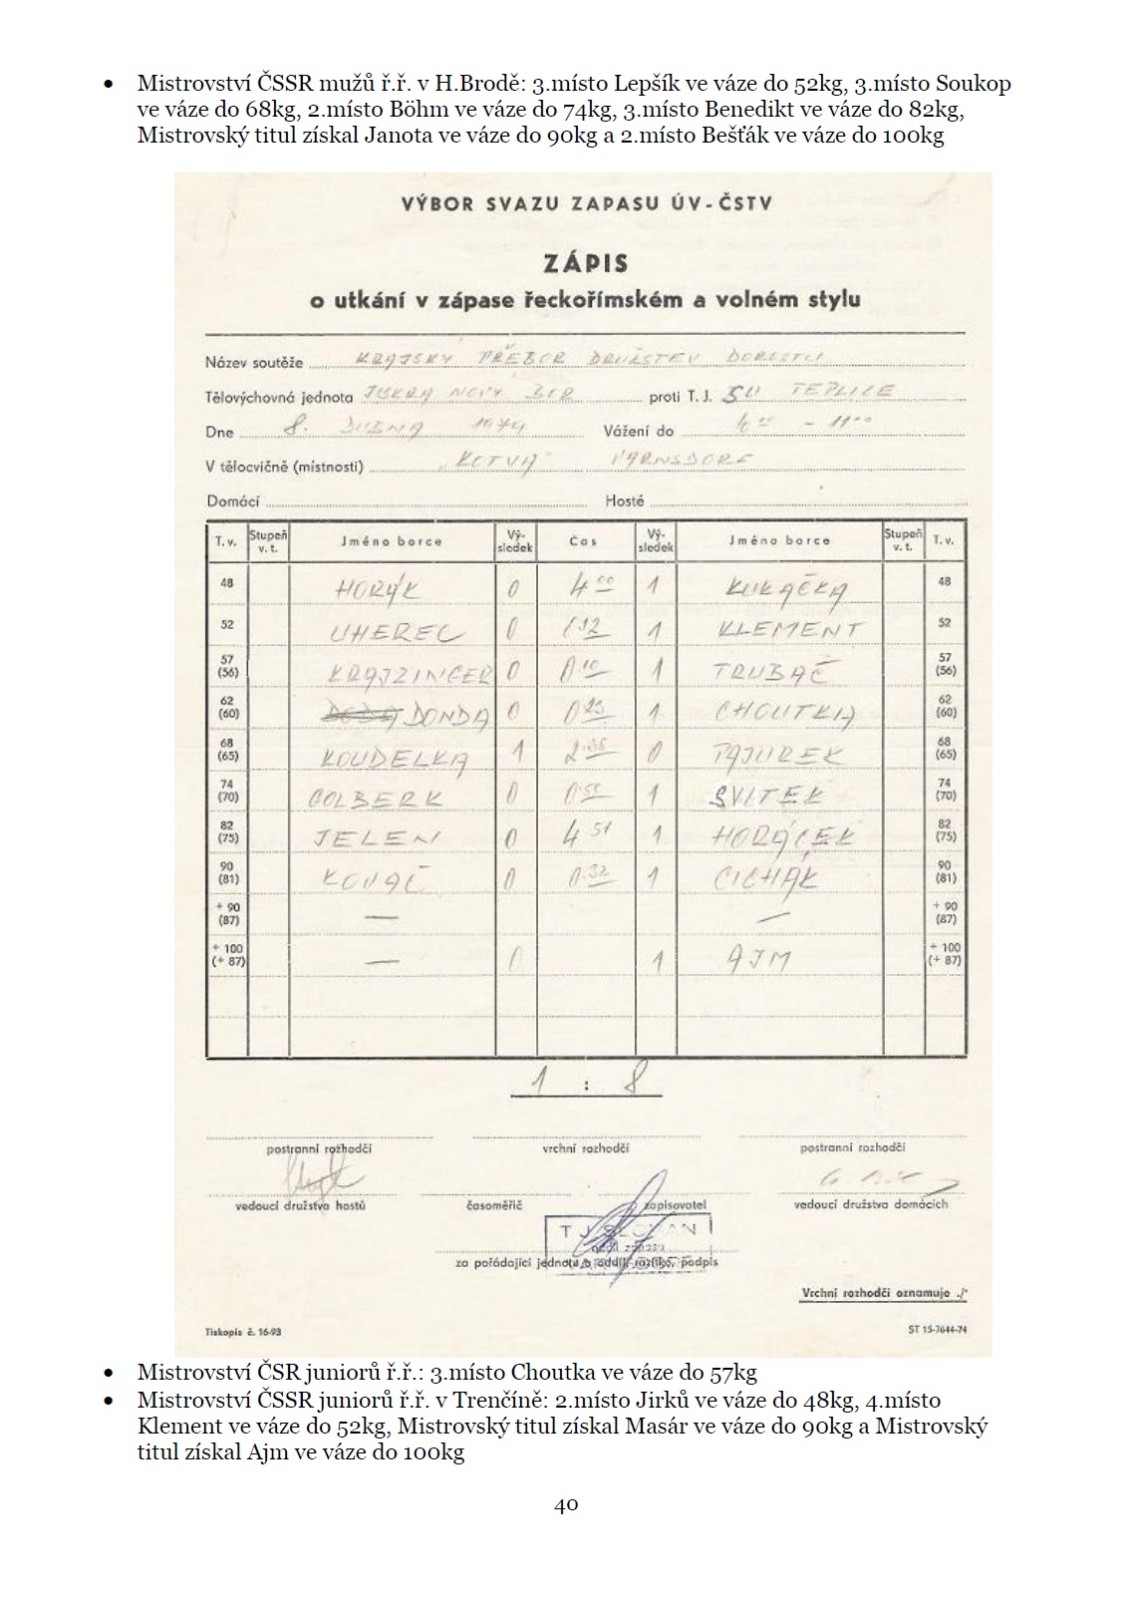 • Mistrovství ČSSR mužů ř.ř. v H.Brodě: 3.místo Lepšík ve váze do 52kg, 3.místo Soukop
ve váze do 68kg, 2.místo Böhm ve váze do 74kg, 3.místo Benedikt ve váze do 82kg,
Mistrovský titul získal Janota ve váze do 90kg a 2.místo Bešťák ve váze do 100kg
VÝBOR SVAZU ZAPASU ÚV-ČSTV
ZÁPIS
o utkání v zápase řeckořímském a volném stylu
Název soutěže KRAJSKÝ PŘEBOR DRUŽSTEV DOROSTU
Tělovýchovná jednota JISKRA NOVÝ BOR proti T. J. SU TEPLICE
Dne 8. DUBNA 1979 Vážení do 10 00 - 11 00
V tělocvičně (místnosti) "KOTVA" VARNSDORF
Domácí Hosté
T. v. Stupeň v. t. Jméno borce Vý-sledek Čas Vý-sledek Jméno borce Stupeň v. t. T. v.
48 HORÁK 0 4 00 1 KUKAČKA 48
52 UHEREC 0 1 32 1 KLEMENT 52
57 (56) KRAJZINGER 0 0 10 1 TRUBAČ 57 (56)
62 (60) DONDA 0 0 23 1 CHOUTKA 62 (60)
68 (65) KOUDELKA 1 2 38 0 PAJUREK 68 (65)
74 (70) GOLBERK 0 0 51 1 SVITEK 74 (70)
82 (75) JELEN 0 4 51 1 HORÁČEK 82 (75)
90 (81) KOVAČ 0 0.32 1 CICHÁK 90 (81)
+ 90 (87) — — + 90 (87)
+ 100 (+ 87) — 0 1 AJM + 100 (+ 87)
1 : 8
postranní rozhodčí vrchní rozhodčí postranní rozhodčí
vedoucí družstva hostů časoměřič zapisovatel vedoucí družstva domácích
T J SLOVAN
oddíl zápasu
za pořádající jednotu a oddíl, razítko, podpis
Vrchní rozhodčí oznamuje ./
Tiskopis č. 16-93 ST 15-7644-74
• Mistrovství ČSR juniorů ř.ř.: 3.místo Choutka ve váze do 57kg
• Mistrovství ČSSR juniorů ř.ř. v Trenčíně: 2.místo Jirků ve váze do 48kg, 4.místo
Klement ve váze do 52kg, Mistrovský titul získal Masár ve váze do 90kg a Mistrovský
titul získal Ajm ve váze do 100kg
40